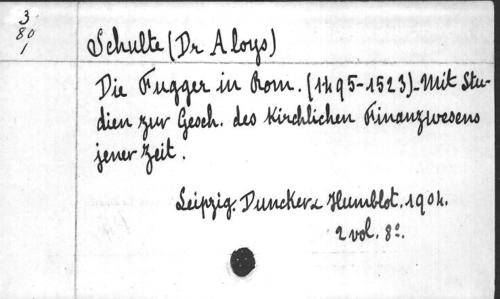 3
80
1
Schulte (Dr Aloys)
Die Fugger in Rom. (1495-1523)_Mit Stu-
dien zur Gesch. des Kirchlichen Finanzwesens
jener Zeit.
Leipzig. Duncker & Humblot. 1904.
2 vol. 8º.